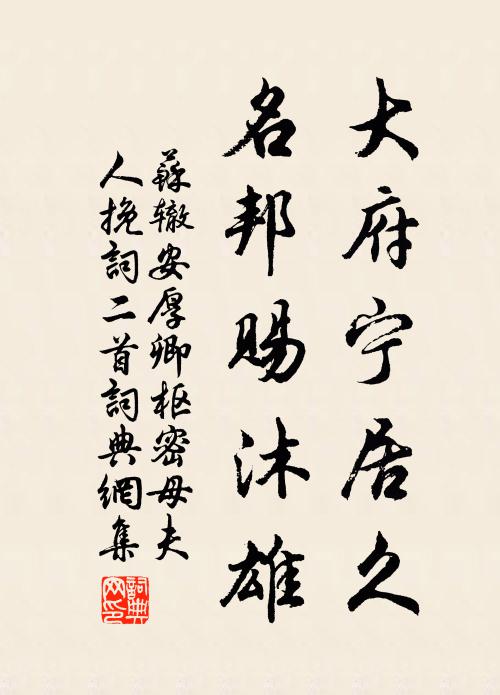 大府宁居久
名邦赐沐雄
蘇辙安厚卿枢密母夫
人挽詞二首詞典網集
詞典網印